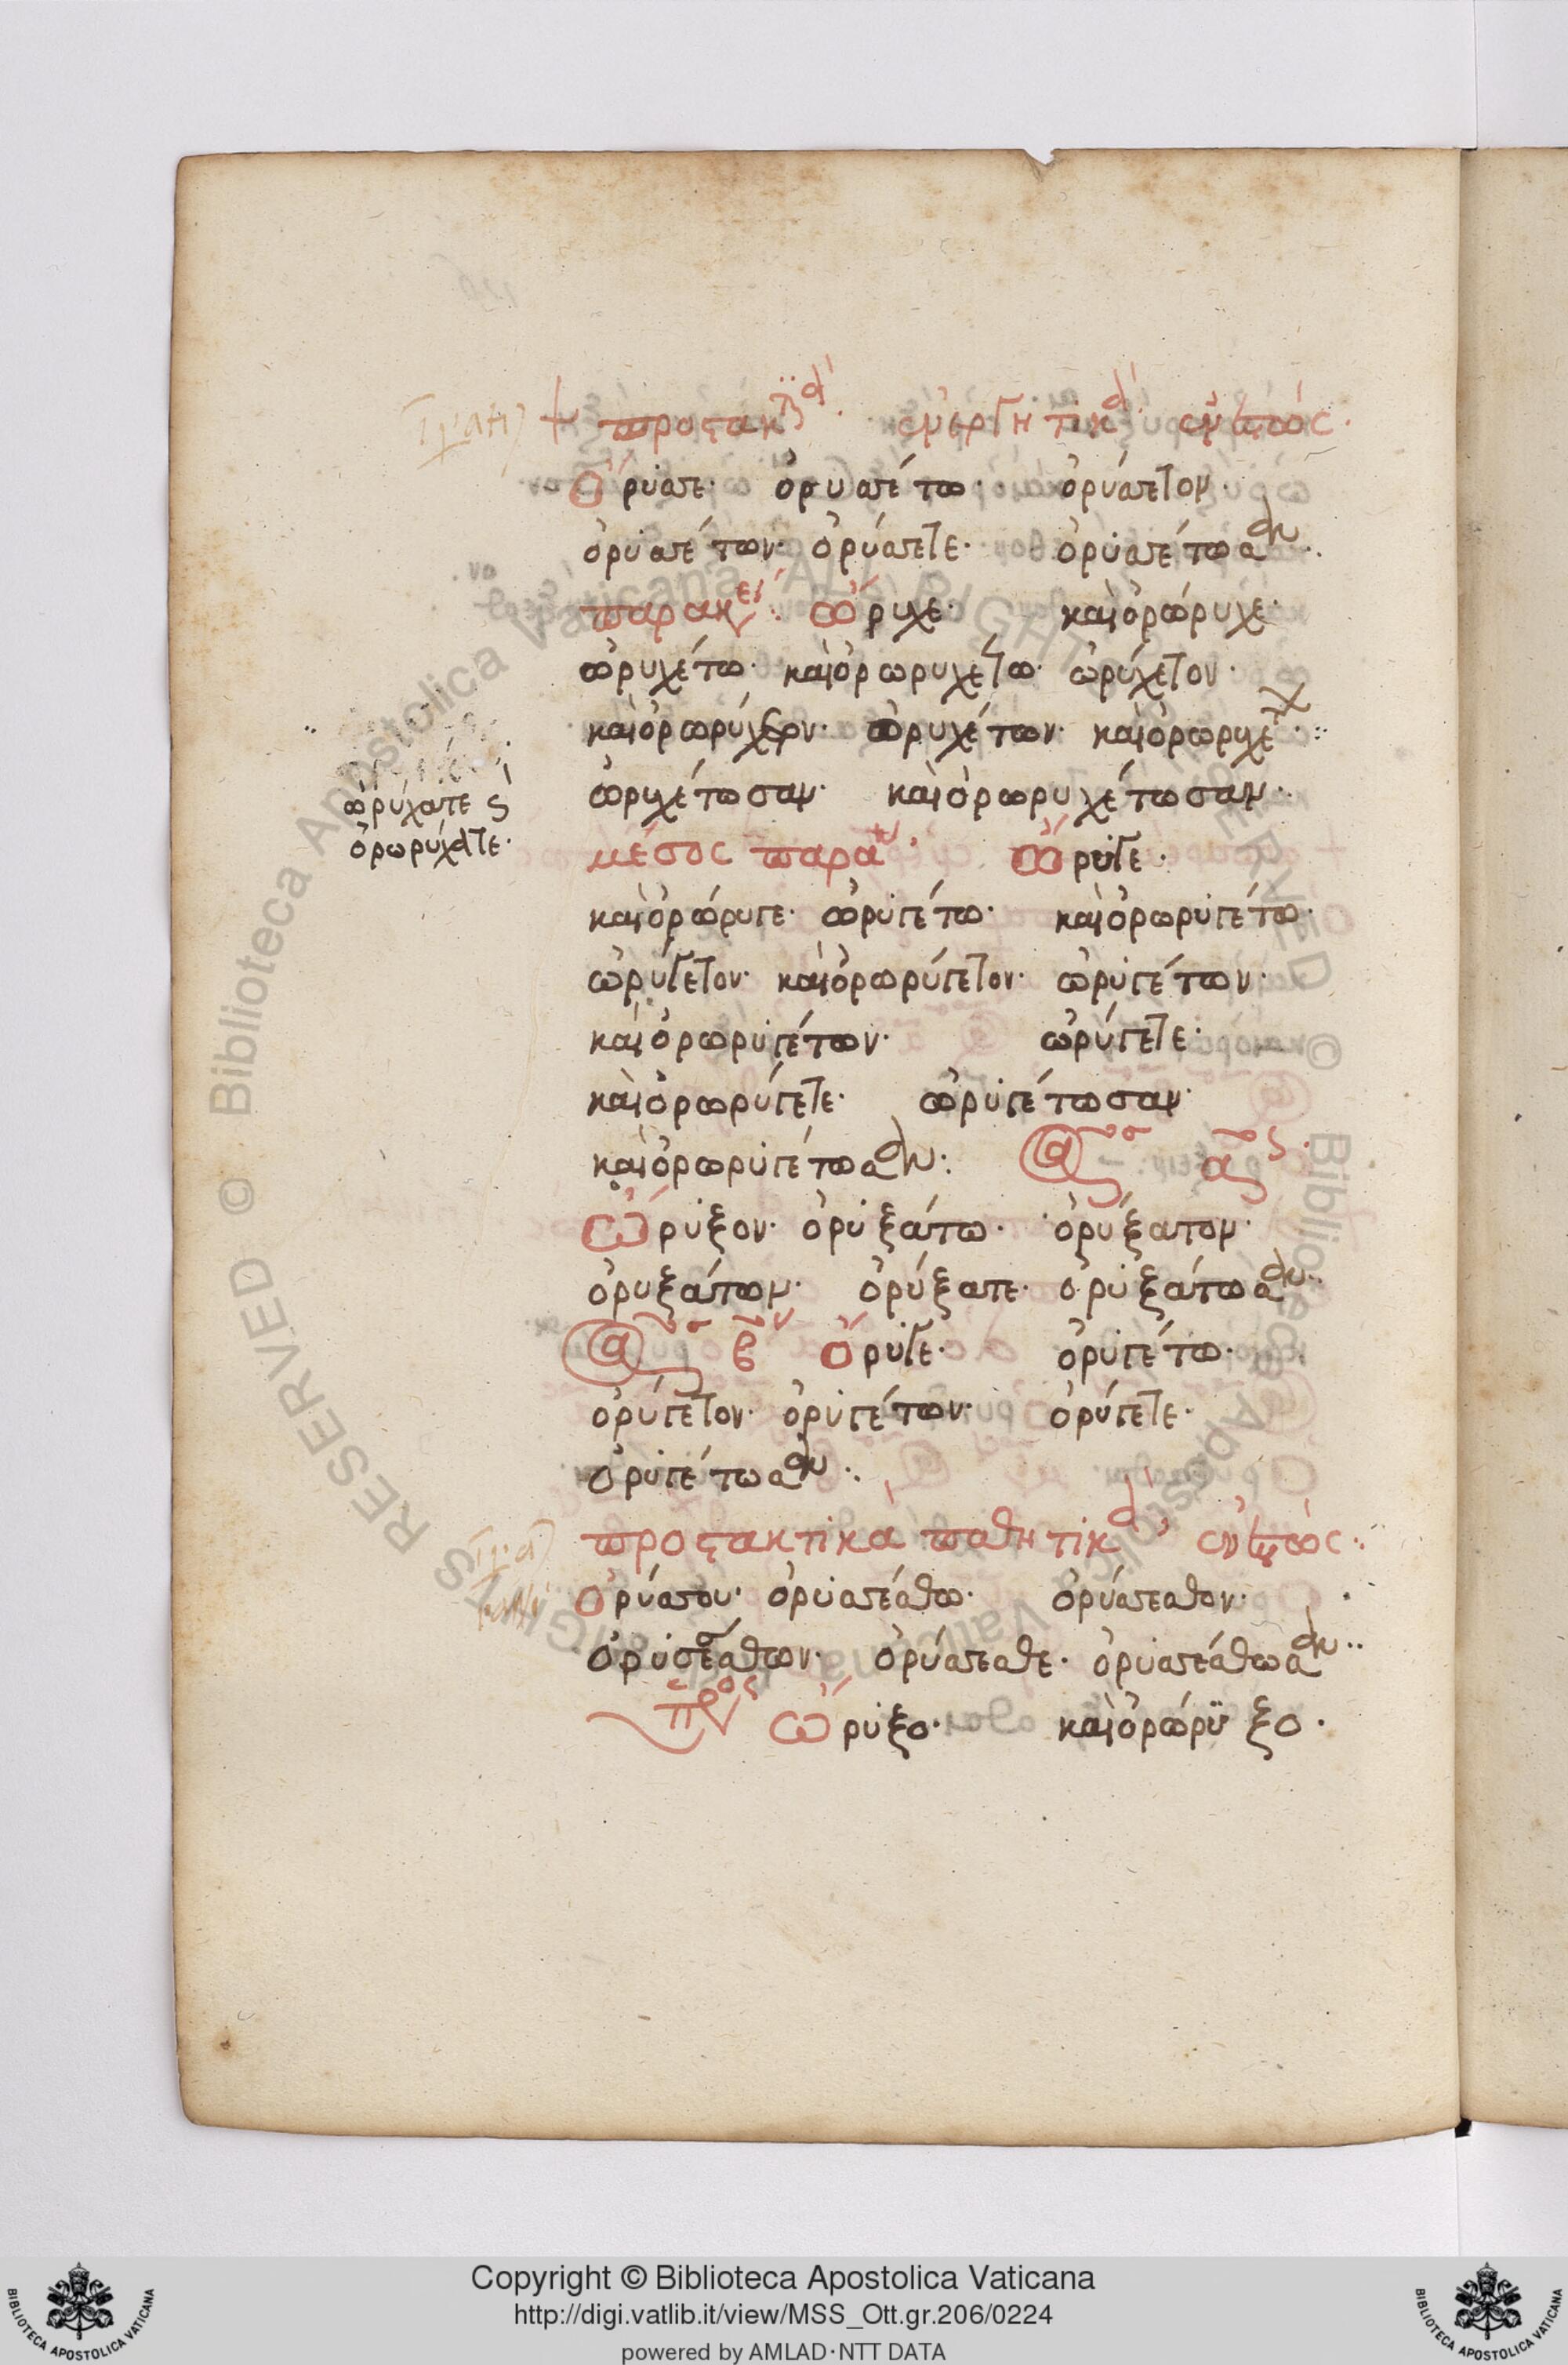 προστακτικὰ ἐνεργητικὰ ἐνεστῶτος.
Ὄρυσσε· ὀρυσσέτω· ὀρύσσετον·
ὀρυσσέτων· ὀρύσσετε· ὀρυσσέτωσαν··
παρακει· ὤρυχε· καὶ ὀρώρυχε·
ὠρυχέτω· καὶ ὀρωρυχέτω· ὠρύχετον·
καὶ ὀρωρύχετον· ὠρυχέτων· καὶ ὀρωρυχέτων·
ὠρυχέτωσαν· καὶ ὀρωρυχέτωσαν·
ὠρύχατε
ὀρωρύχατε·
μέσος παρα ὤρυγε·
καὶ ὀρώρυγε· ὠρυγέτω· καὶ ὀρωρυγέτω·
ὠρύγετον· καὶ ὀρωρύγετον· ὠρυγέτων·
καὶ ὀρωρυγέτων· ὠρύγετε·
καὶ ὀρωρύγετε· ὠρυγέτωσαν·
καὶ ὀρωρυγέτωσαν:
ὤρυξον· ὀρυξάτω· ὀρύξατον·
ὀρυξάτων· ὀρύξατε· ὀρυξάτωσαν··
β ὄρυγε· ὀρυγέτω·
ὀρύγετον· ὀρυγέτων· ὀρύγετε·
ὀρυγέτωσαν··
προστακτικὰ παθητικὰ ἐνεστῶτος··
Ὀρύσσου· ὀρυσσέσθω· ὀρύσσεσθον·
ὀρυσσέσθων· ὀρύσσεσθε· ὀρυσσέσθωσαν··
ὤρυξο· καὶ ὀρώρυξο·
Copyright © Biblioteca Apostolica Vaticana
http://digi.vatlib.it/view/MSS_Ott.gr.206/0224
powered by AMLAD·NTT DATA